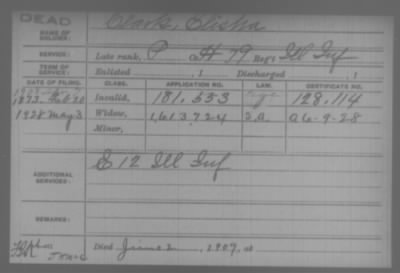 DEAD
NAME OF SOLDIER: Clark, Elisha
SERVICE: Late rank, P Co. H 79 Reg't Ill Inf
TERM OF SERVICE: Enlisted , 1 Discharged , 1
DATE OF FILING. CLASS. APPLICATION NO. LAW. CERTIFICATE NO.
1873 Feb 20 Invalid, 181,553 128,114
1928 May 3 Widow, 1613724 A 6-9-28
Minor,
ADDITIONAL SERVICES: E 12 Ill Inf
REMARKS:
Died June 2, 1907, at